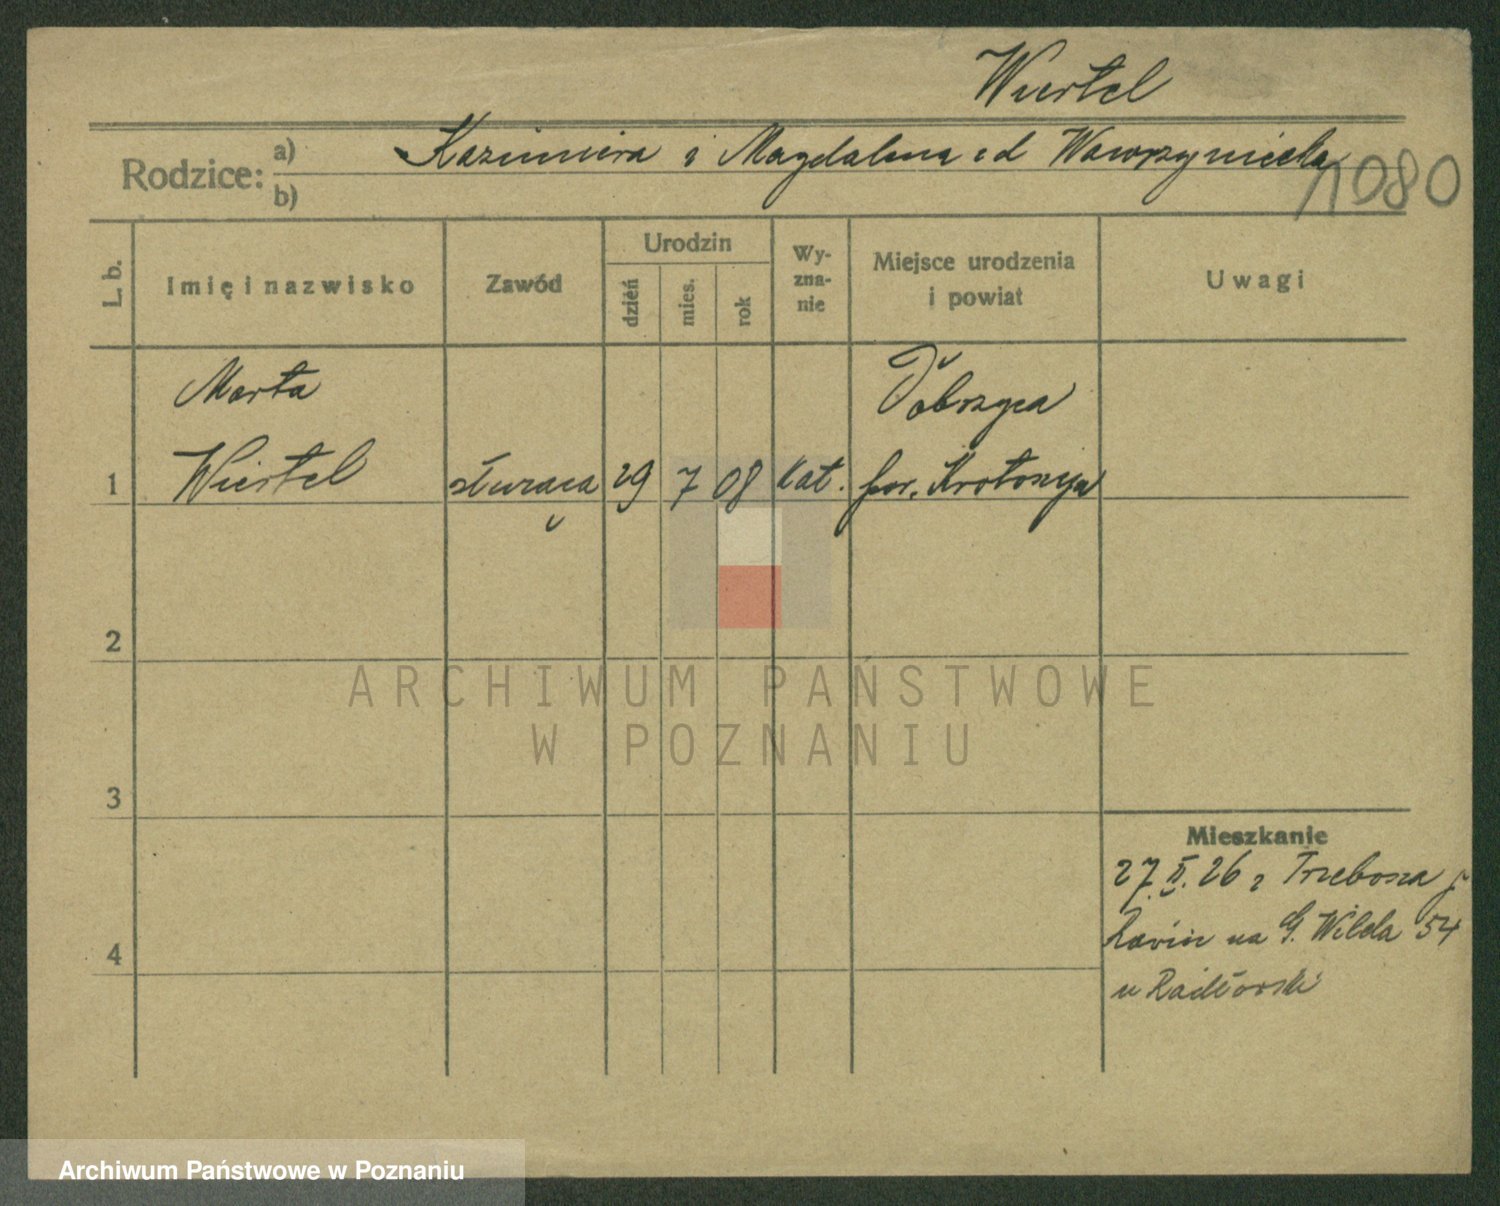 Wiertel
Rodzice: a) Kazimiera i Magdalena z d Wawrzyniecka
b)
1080
L. b.
Imię i nazwisko
Zawód
Urodzin
dzień
mies.
rok
Wy-
zna-
nie
Miejsce urodzenia
i powiat
Uwagi
Marta
Dobrzyca
1 Wiertel służąca 29 7 08 kat. pow. Krotoszyn
2
3
4
ARCHIWUM PAŃSTWOWE
W POZNANIU
Mieszkanie
27.II.26 z Trzebosza
na G. Wilda 54
u Radłowski
Archiwum Państwowe w Poznaniu